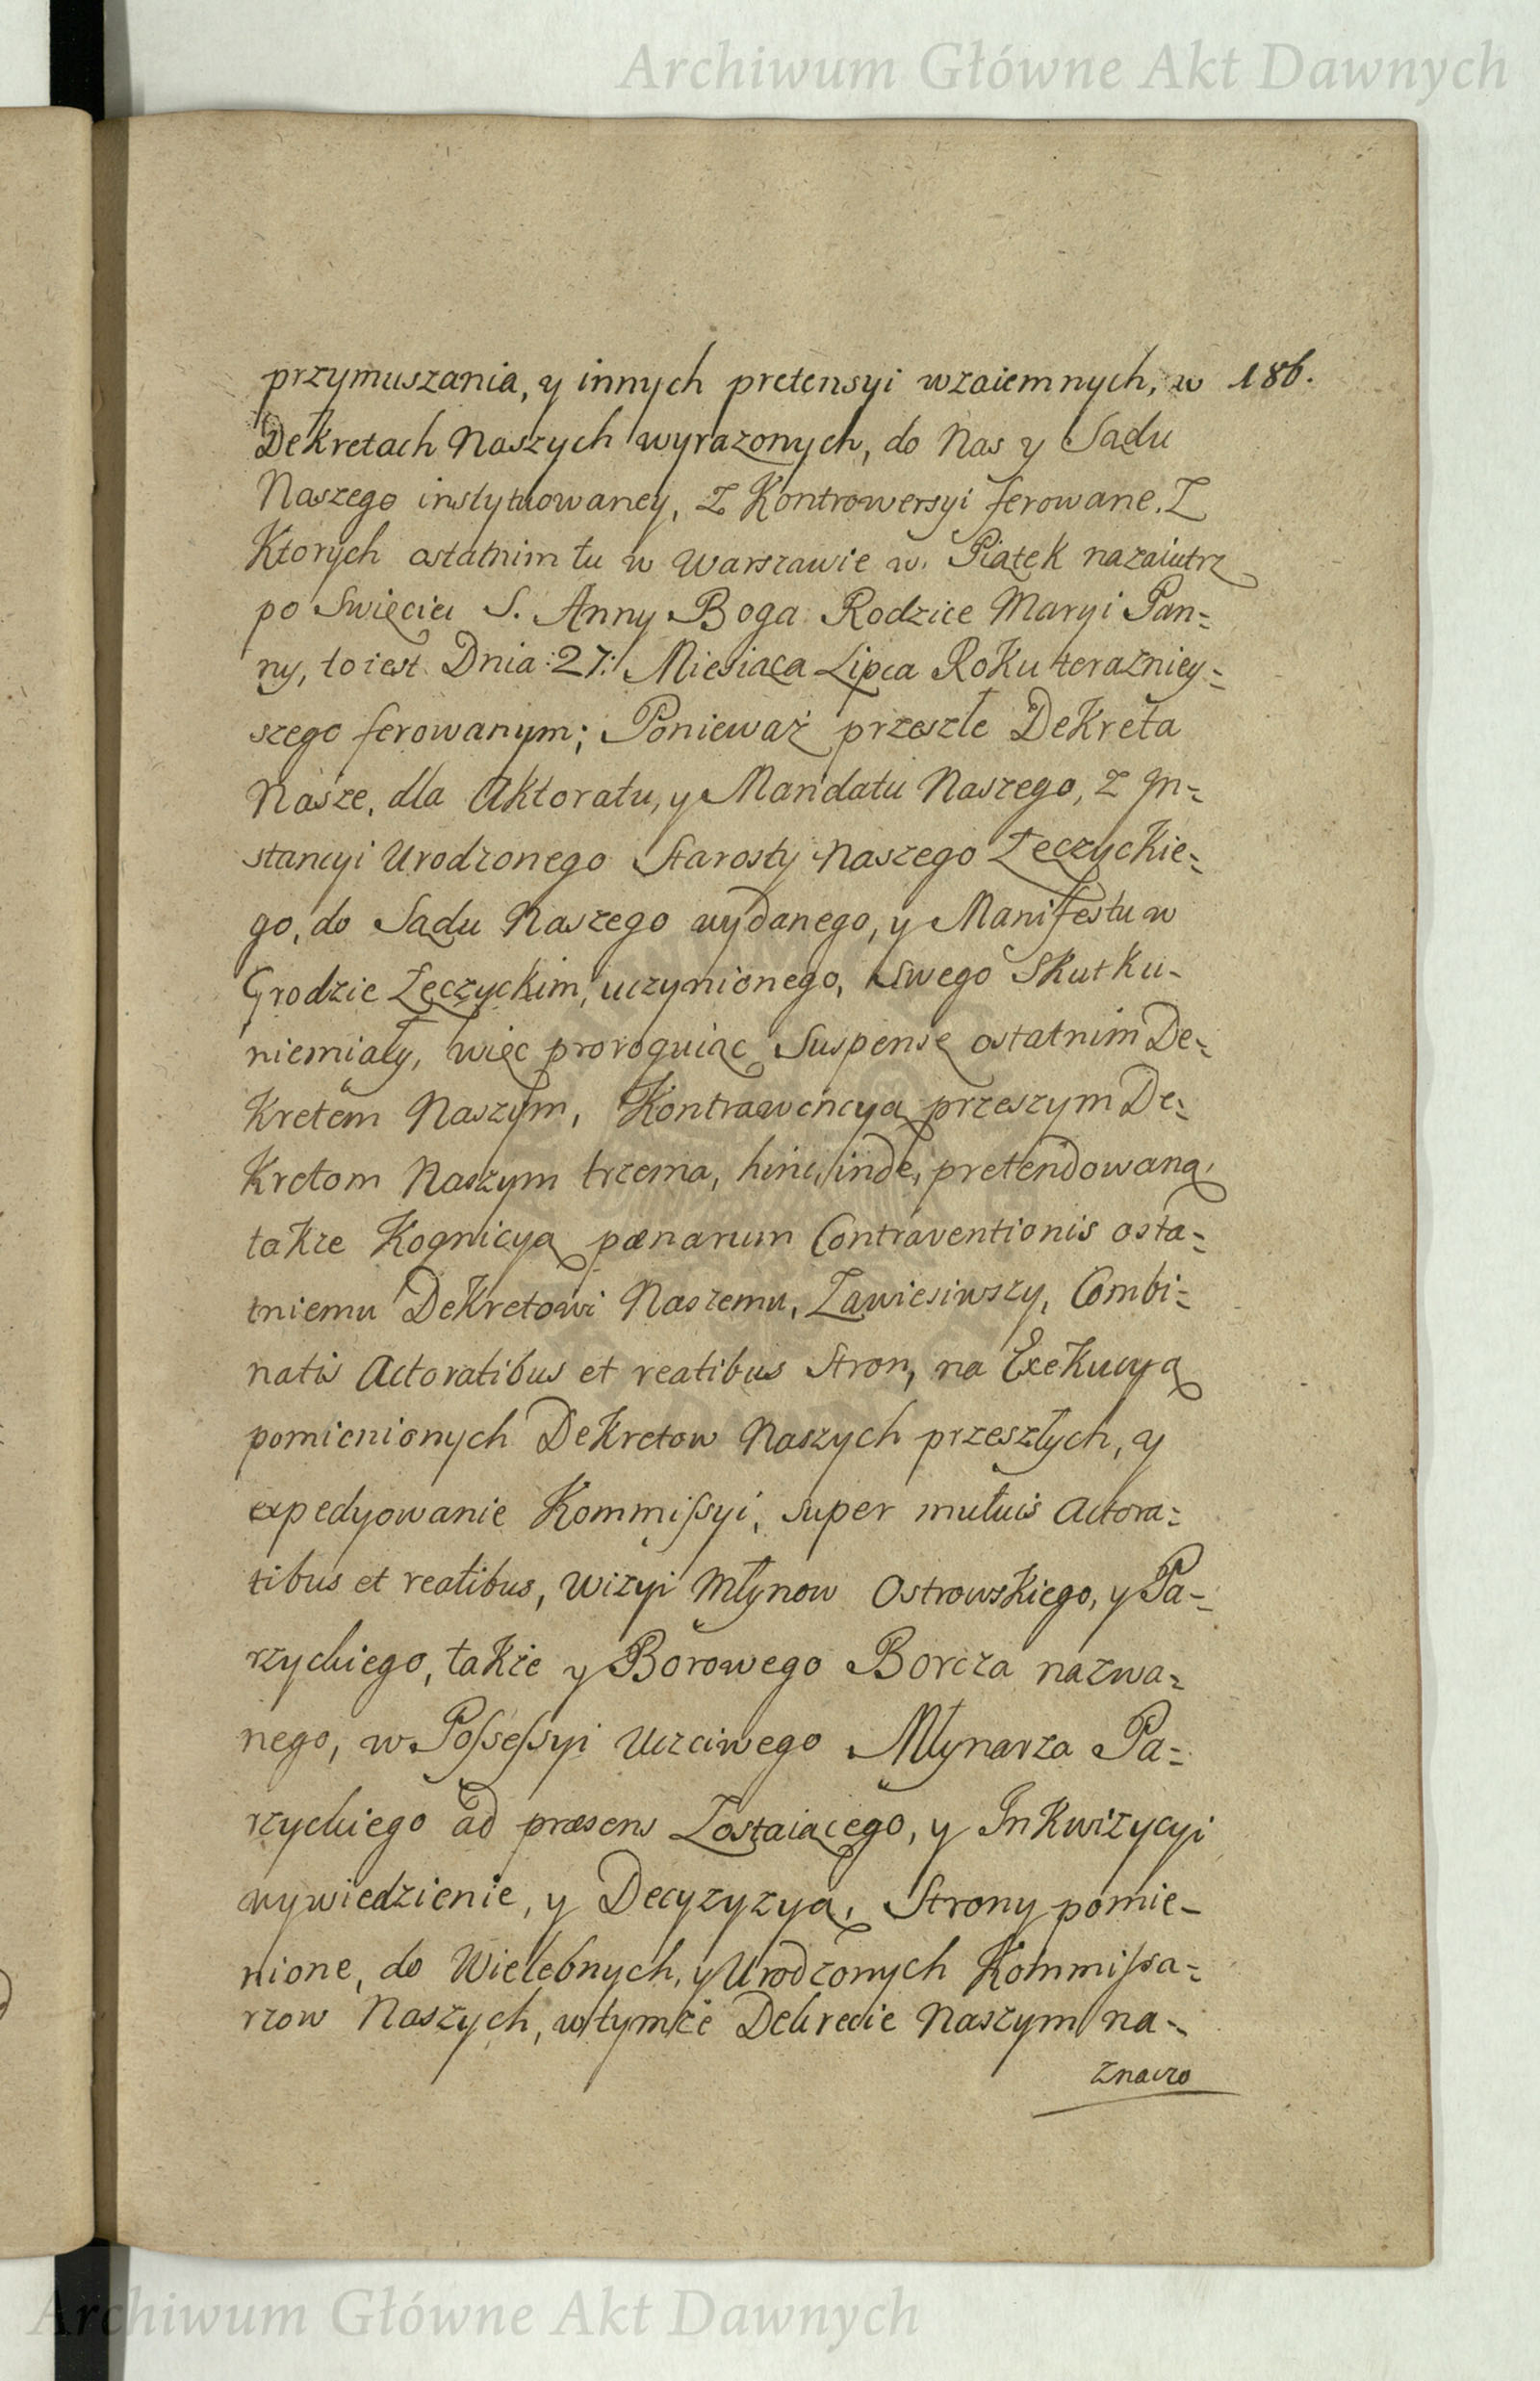 Archiwum Główne Akt Dawnych
przymuszania, y innych pretensyi wzaiemnych, w 186.
Dekretach Naszych wyrazonych, do Nas y Sądu
Naszego instytuowaney, z Kontrowersyi ferowane. Z
Ktorych ostatnim tu w Warszawie w Piątek nazaiutrz
po Swięciei S. Anny Boga Rodzice Maryi Pan=
ny, to iest Dnia :27: Miesiąca Lipca Roku teraźniey=
szego ferowanym; Ponieważ przeszłe Dekreta
Nasze, dla Aktoratu, y Mandatu Naszego, z In=
stancyi Urodzonego Starosty Naszego Łęczyckie=
go, do Sądu Naszego wydanego, y Manifestu w
Grodzie Łęczyckim, uczynionego, swego Skutku-
niemiały, więc proroguiąc Suspensę ostatnim De=
kretem Naszym, Kontrawencyą przeszym De=
kretom Naszym trzema, hinc, inde, pretendowaną,
takze Kognicyą pænarum Contraventionis osta=
tniemu Dekretowi Naszemu, Zawiesiwszy, Combi=
natis Actoratibus et reatibus Stron, na Exekucyą
pomienionych Dekretow Naszych przeszłych, y
expedyowanie Kommissyi, super mutuis Actora=
tibus et reatibus, wizyi Młynow Ostrowskiego, y Pa=
rzyckiego, także y Borowego Borcza nazwa=
nego, w Possessyi Uczciwego Młynarza Pa=
rzyckiego ad præsens Zostaiącego, y Inkwizycyi
wywiedzienie, y Decyzyzyą, Strony pomie-
nione, do Wielebnych, y Urodzonych Kommissa=
rzow Naszych, w tymże Dekrecie Naszym na=
znaczo
Archiwum Główne Akt Dawnych